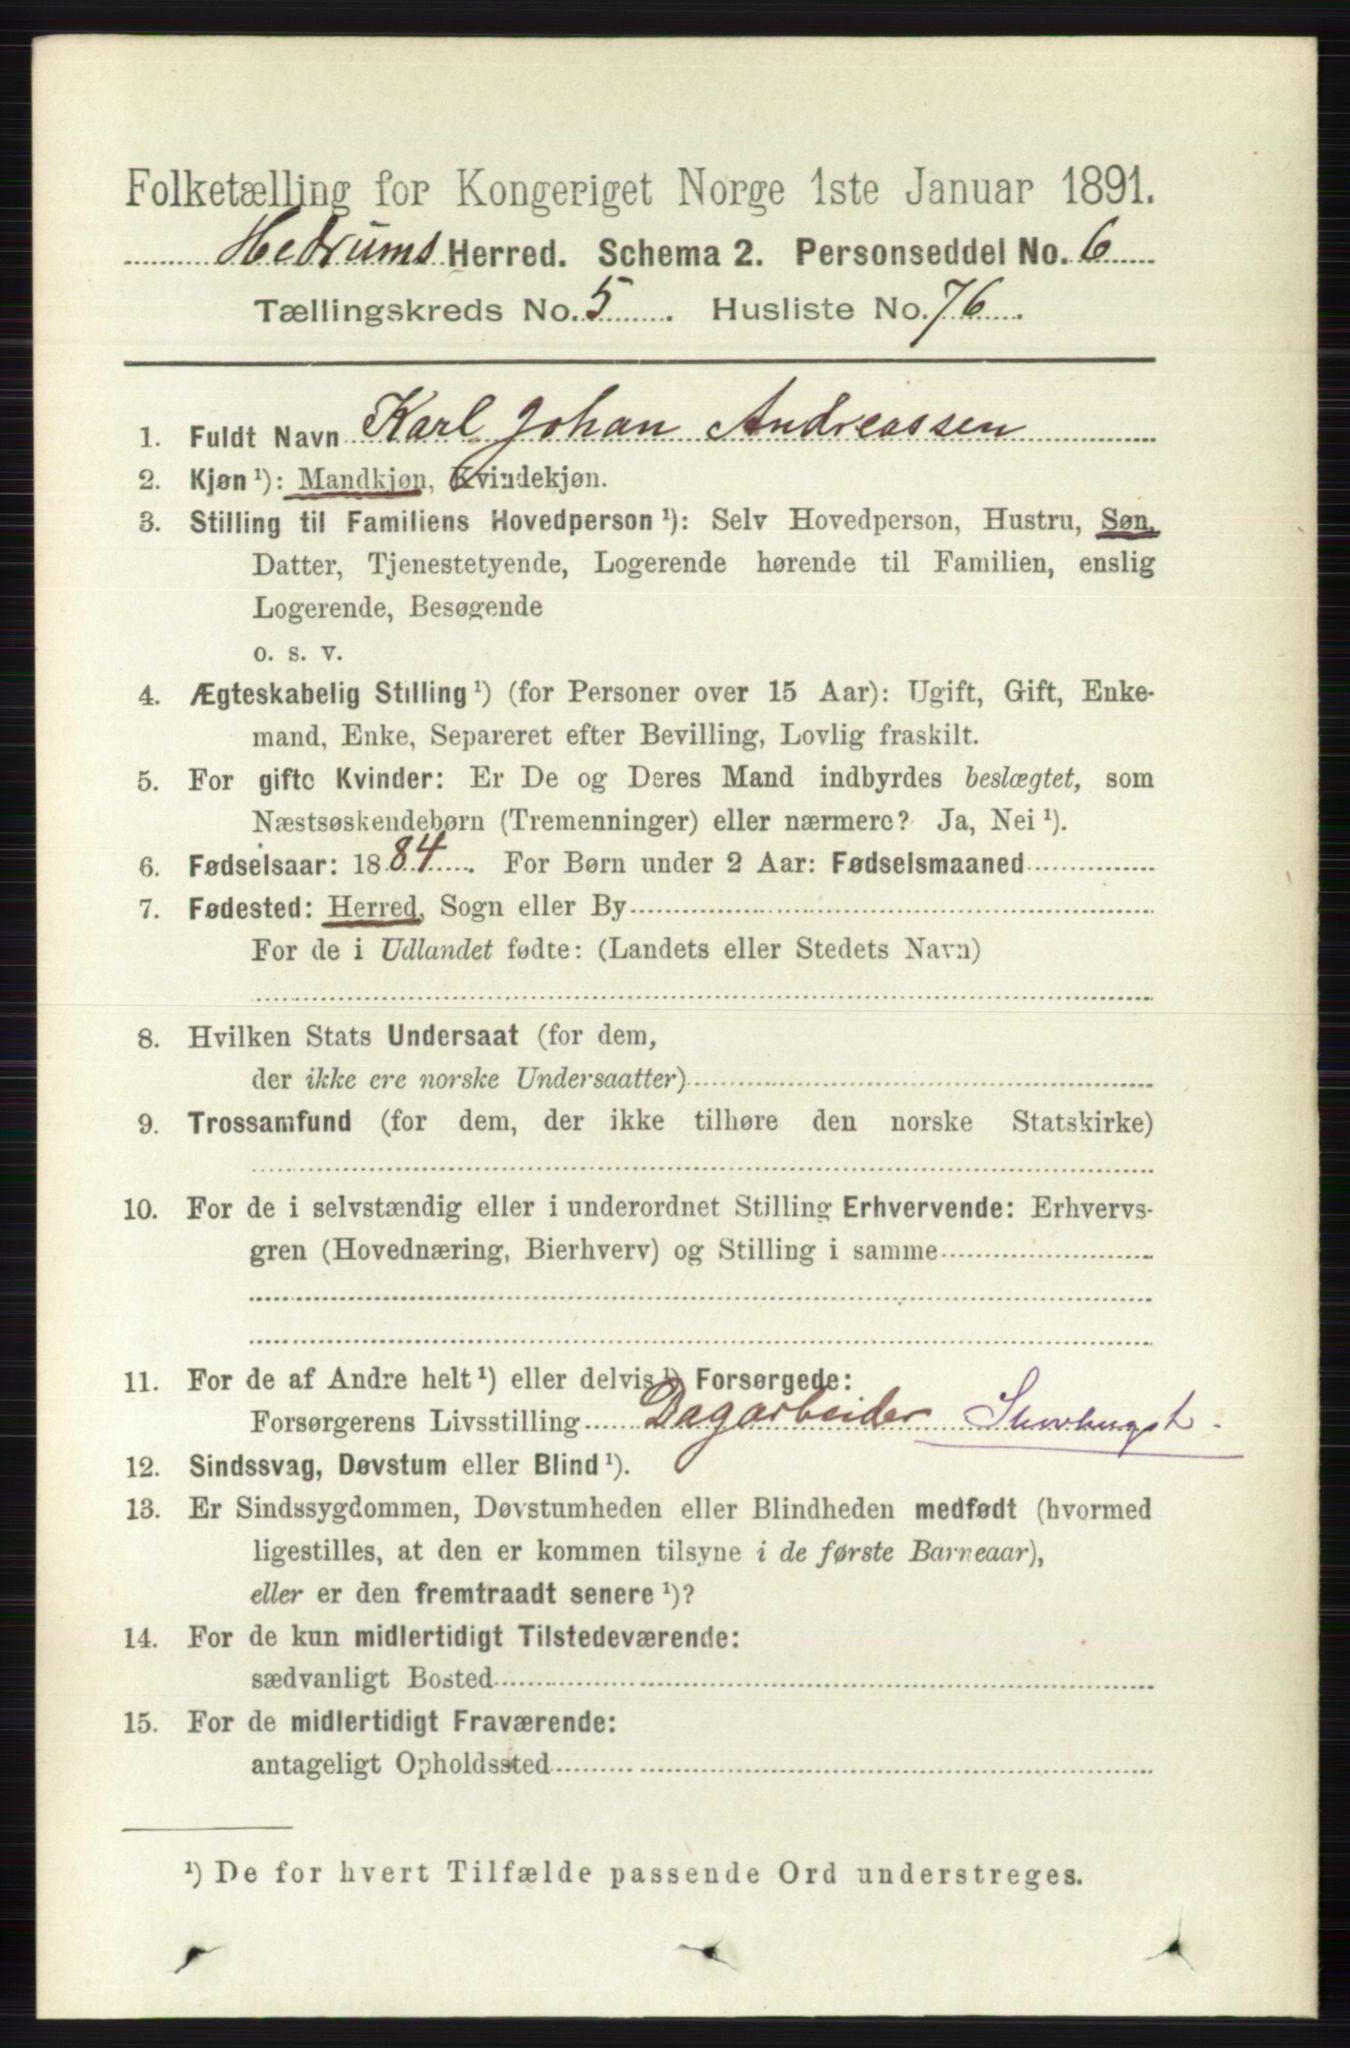 Folketælling for Kongeriget Norge 1ste Januar 1891.
Hedrums Herred. Schema 2. Personseddel No. 6
Tællingskreds No. 5. Husliste No. 76.
1. Fuldt Navn Karl Johan Andreassen
2. Kjøn¹): Mandkjøn, Kvindekjøn.
3. Stilling til Familiens Hovedperson¹): Selv Hovedperson, Hustru, Søn,
Datter, Tjenestetyende, Logerende hørende til Familien, enslig
Logerende, Besøgende
o. s. v.
4. Ægteskabelig Stilling¹) (for Personer over 15 Aar): Ugift, Gift, Enke-
mand, Enke, Separeret efter Bevilling, Lovlig fraskilt.
5. For gifte Kvinder: Er De og Deres Mand indbyrdes beslægtet, som
Næstsøskendebørn (Tremenninger) eller nærmere? Ja, Nei¹).
6. Fødselsaar: 1884. For Børn under 2 Aar: Fødselsmaaned
7. Fødested: Herred, Sogn eller By
For de i Udlandet fødte: (Landets eller Stedets Navn)
8. Hvilken Stats Undersaat (for dem,
der ikke ere norske Undersaatter)
9. Trossamfund (for dem, der ikke tilhøre den norske Statskirke)
10. For de i selvstændig eller i underordnet Stilling Erhvervende: Erhvervs-
gren (Hovednæring, Bierhverv) og Stilling i samme
11. For de af Andre helt¹) eller delvis¹) Forsørgede:
Forsørgerens Livsstilling Dagarbeider Skovhugst.
12. Sindssvag, Døvstum eller Blind¹).
13. Er Sindssygdommen, Døvstumheden eller Blindheden medfødt (hvormed
ligestilles, at den er kommen tilsyne i de første Barneaar),
eller er den fremtraadt senere¹)?
14. For de kun midlertidigt Tilstedeværende:
sædvanligt Bosted
15. For de midlertidigt Fraværende:
antageligt Opholdssted
¹) De for hvert Tilfælde passende Ord understreges.